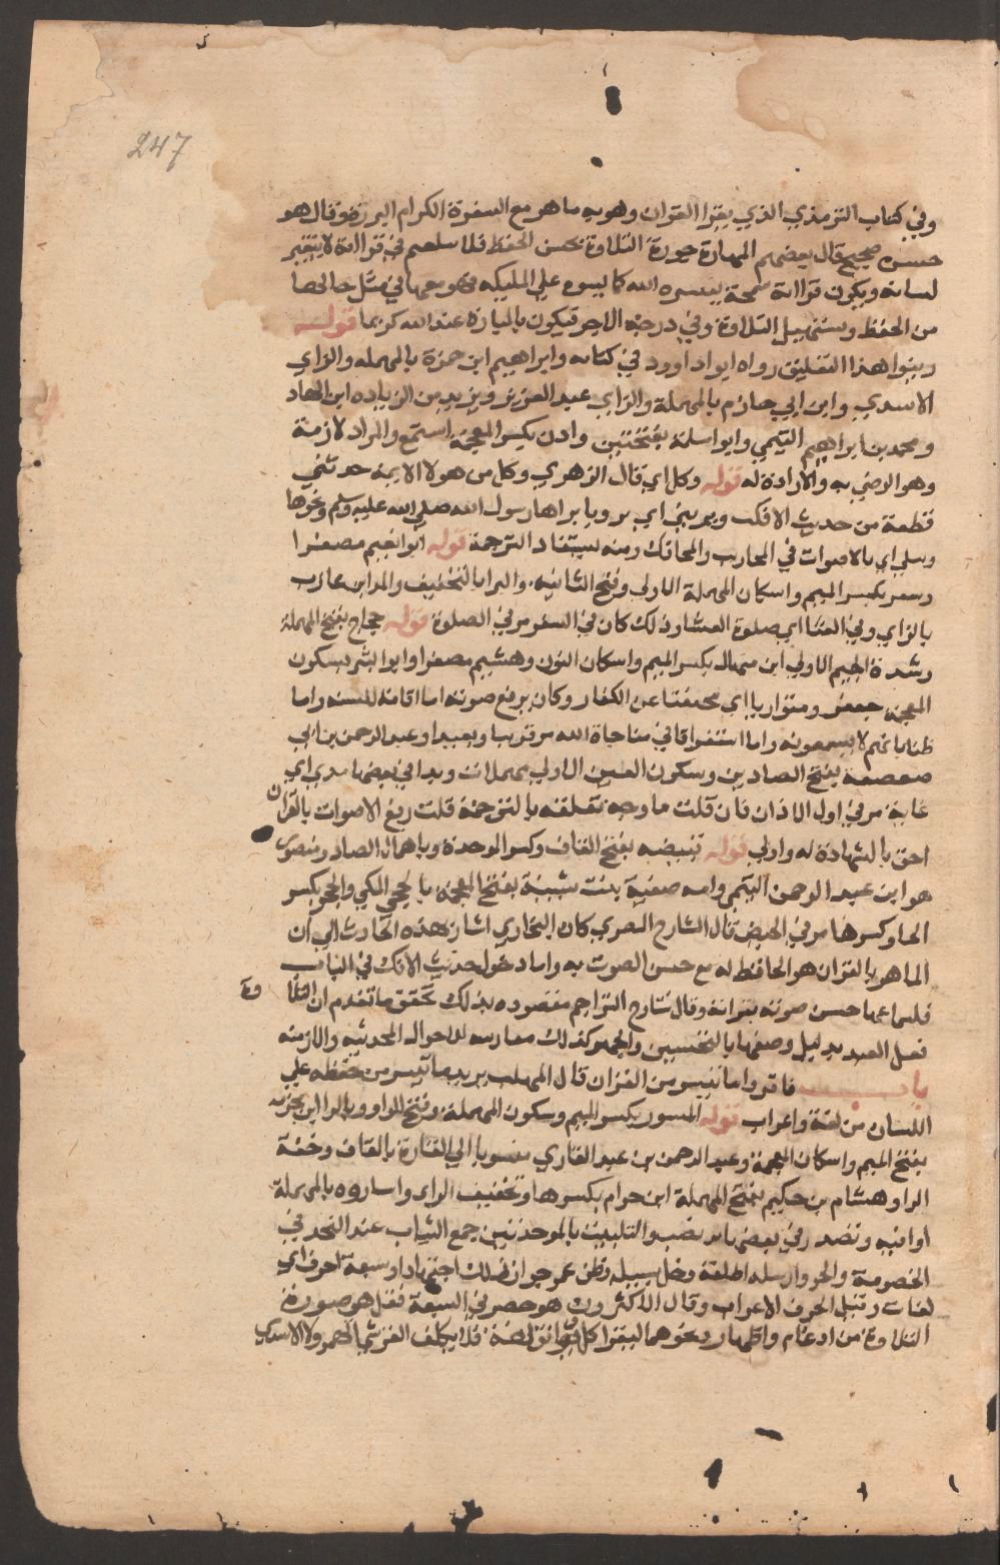 247
وفي كتاب الترمذي الذي يقرا القران وهو به ماهر مع السفرة الكرام البررة وقال هو
حسن صحيح قال بعضهم المهارة جودة التلاوة بحسن الحفظ فلا يتلعثم في قراته لا يتغير
لسانه ويكون قراته سمحة بيسره الله كما يسره على المليكه فهو معها في مثل حالها
من الحفظ وتسهيل التلاوة وفي درجة الاجر فيكون بالمهارة عند الله كريما قوله
زينوا هذا التعليق رواه ابو داوود في كتابه وابراهيم ابن حمزة بالمهمله والزاي
الاسدي وابن ابي حازم بالمهملة والزاي عبد العزيز ويزيد من الزياده ابن الهاد
ومحمد بن ابراهيم التيمي وابو اسلمة بفتحتين واذن بكسر المعجمة استمع والمراد لازمة
وهو الرضي به والارادة له قوله وكل اي قال الزهري وكل من هولا الايمة حدثني
قطعة من حديث الافك وبريني اي بروبا براها رسول الله صلى الله عليه وسلم ونحوها
وسلي اي بالاصوات في المحارب والمحافل ومنه يستفاد الترجمة قوله ابو نعيم مصغرا
ومسعر بكسر الميم واسكان المهملة الاولى وفتح الثانيه والبرا بالتخفيف والمد ابن عازب
بالزاي وفي العشا اي صلوة العشا وذلك كان في السفر مر في الصلوة قوله حجاج بفتح المهملة
وشدة الجيم الاولى ابن منهال بكسر الميم واسكان النون وهشيم مصغرا وابو البشر بسكون
المعجمة جعفر ومتواريا اي مختفيا عن الكفار وكان يرفع صوته اما اقامة للسنة واما
ظنا بانهم لا يسمعونه واما استغراقا في مناجاة الله مر قريبا وبعيدا وعبد الرحمن بن ابي
صعصعة بفتح الصادين وسكون العين الاولى مهملات وبدا في بعضها مدي اي
غاية مر في اول الاذان فان قلت ما وجه تعلقه بالترجمة قلت رفع الاصوات بالقران
احق بالشهادة له واولى قوله قبيصه بفتح القاف وكسر الموحدة وباهمال الصاد ومنصور
هو ابن عبد الرحمن التيمي وامه صفية بنت شيبة بفتح المعجمة الحجبي المكي والحجر بكسر
الحا وكسرها مر في الحيض قال الشارح المصري كان البخاري اشار بهذه الحاديث الى ان
الماهر بالقران هو الحافظ له مع حسن الصوت به واما دخول حديث الافك في الباب
فلسماعها حسن صوته بقراته وقال شارح التراجم مقصوده بذلك تحقق ما تقدم ان التلاوة
فعل العبد بدليل وصفها بالتحسين والجهر كذلك مقارنته للاحوال المحدثه والازمنه
باب فاقروا ما تيسر من القران قال المهلب يريد ما تيسر من حفظه على
اللسان من لغة واعراب قوله المسور بكسر الميم وسكون المهملة وفتح الواو وبالرا ابن مخرمة
بفتح الميم واسكان المعجمة وعبد الرحمن بن عبد القاري منسوبا الى القارة بالقاف وخفة
الرا وهشام بن حكيم بفتح المهملة ابن حزام بكسرها وتخفيف الزاي واساوره بالمهملة
اواثبه وتصد وفي بعضها تربصت والتلبيب بالموحدتين جمع الثياب عند النحر في
الخصومة والجر وارسله اطلقه وخلى سبيله وظن عمر جواز ذلك اجتهادا وسبعة احرف اي
لغات وقيل الحرف الاعراب وقال الاكثرون هو حصر في السبعة فقيل هو صورة
التلاوة من ادغام واظهار ونحوهما ليقرا كل بما يوافق لغته فلا يكلف القرشي الهمز ولا الاسدي